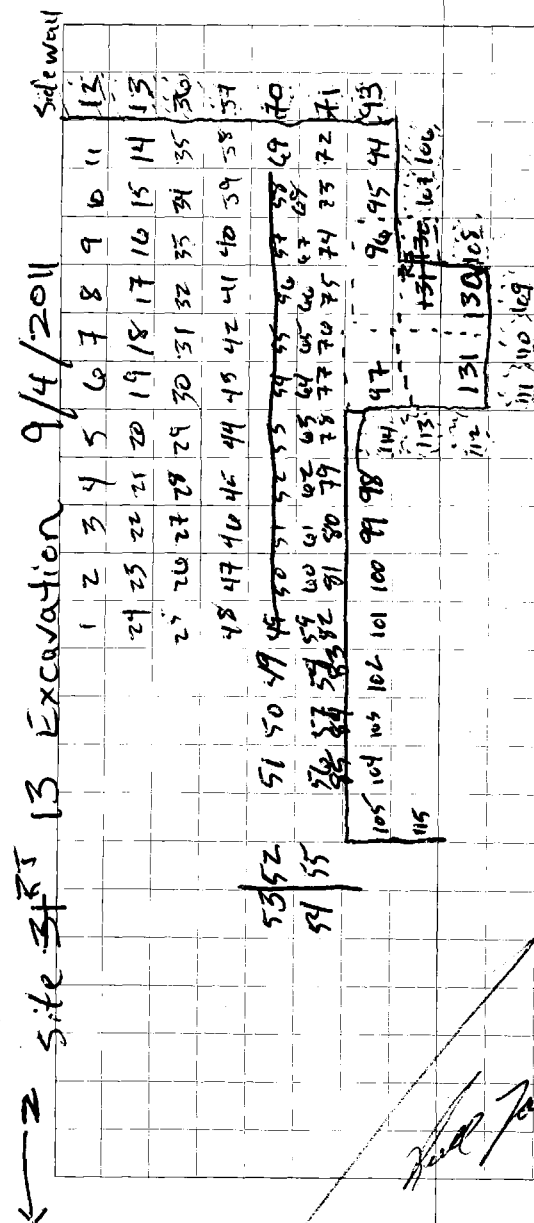 ← N Site 31 RJ 13 Excavation 9/4/2011
Sidewall
1 2 3 4 5 6 7 8 9 10 11 12
24 23 22 21 20 19 18 17 16 15 14 13
25 26 27 28 29 30 31 32 33 34 35 36
48 47 46 45 44 43 42 41 40 39 38 37
53 52 51 50 49 49 50 51 52 53 54 55 56 57 58 69 70
54 55 56 57 58 59 60 61 62 63 64 65 66 67 68
85 84 83 82 81 80 79 78 77 76 75 74 73 72 71
105 104 103 102 101 100 99 98 97 96 95 94 93
115 114 131 130 107 106
113
112 131 130 108
111 110 109